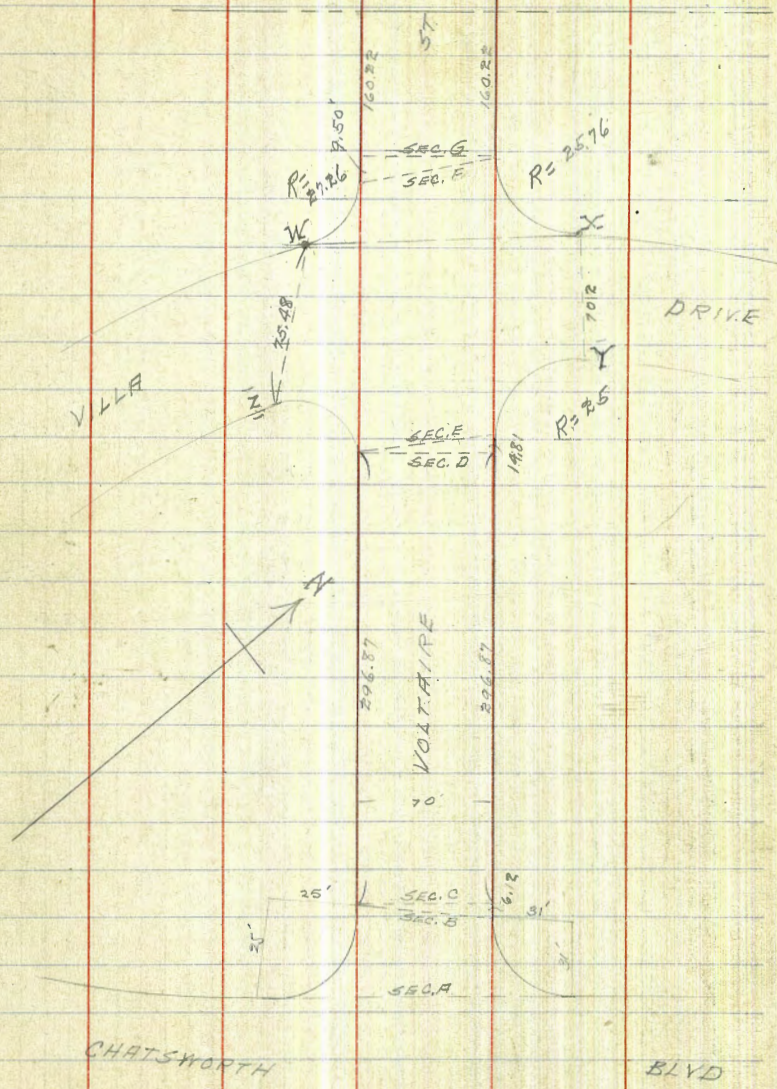 ST.
160.22
160.22
9.50'
SEC. G
SEC. F
R= 27.26
R= 25.76
W
X
75.48
7012
DRIVE
Y
VILLA
Z
R= 25
SEC. E
SEC. D
14.81
N
296.87
VOLTAIRE
296.87
70'
25'
SEC. C
6.12
SEC. B
31'
25'
31'
SEC. A
CHATSWORTH
BLVD